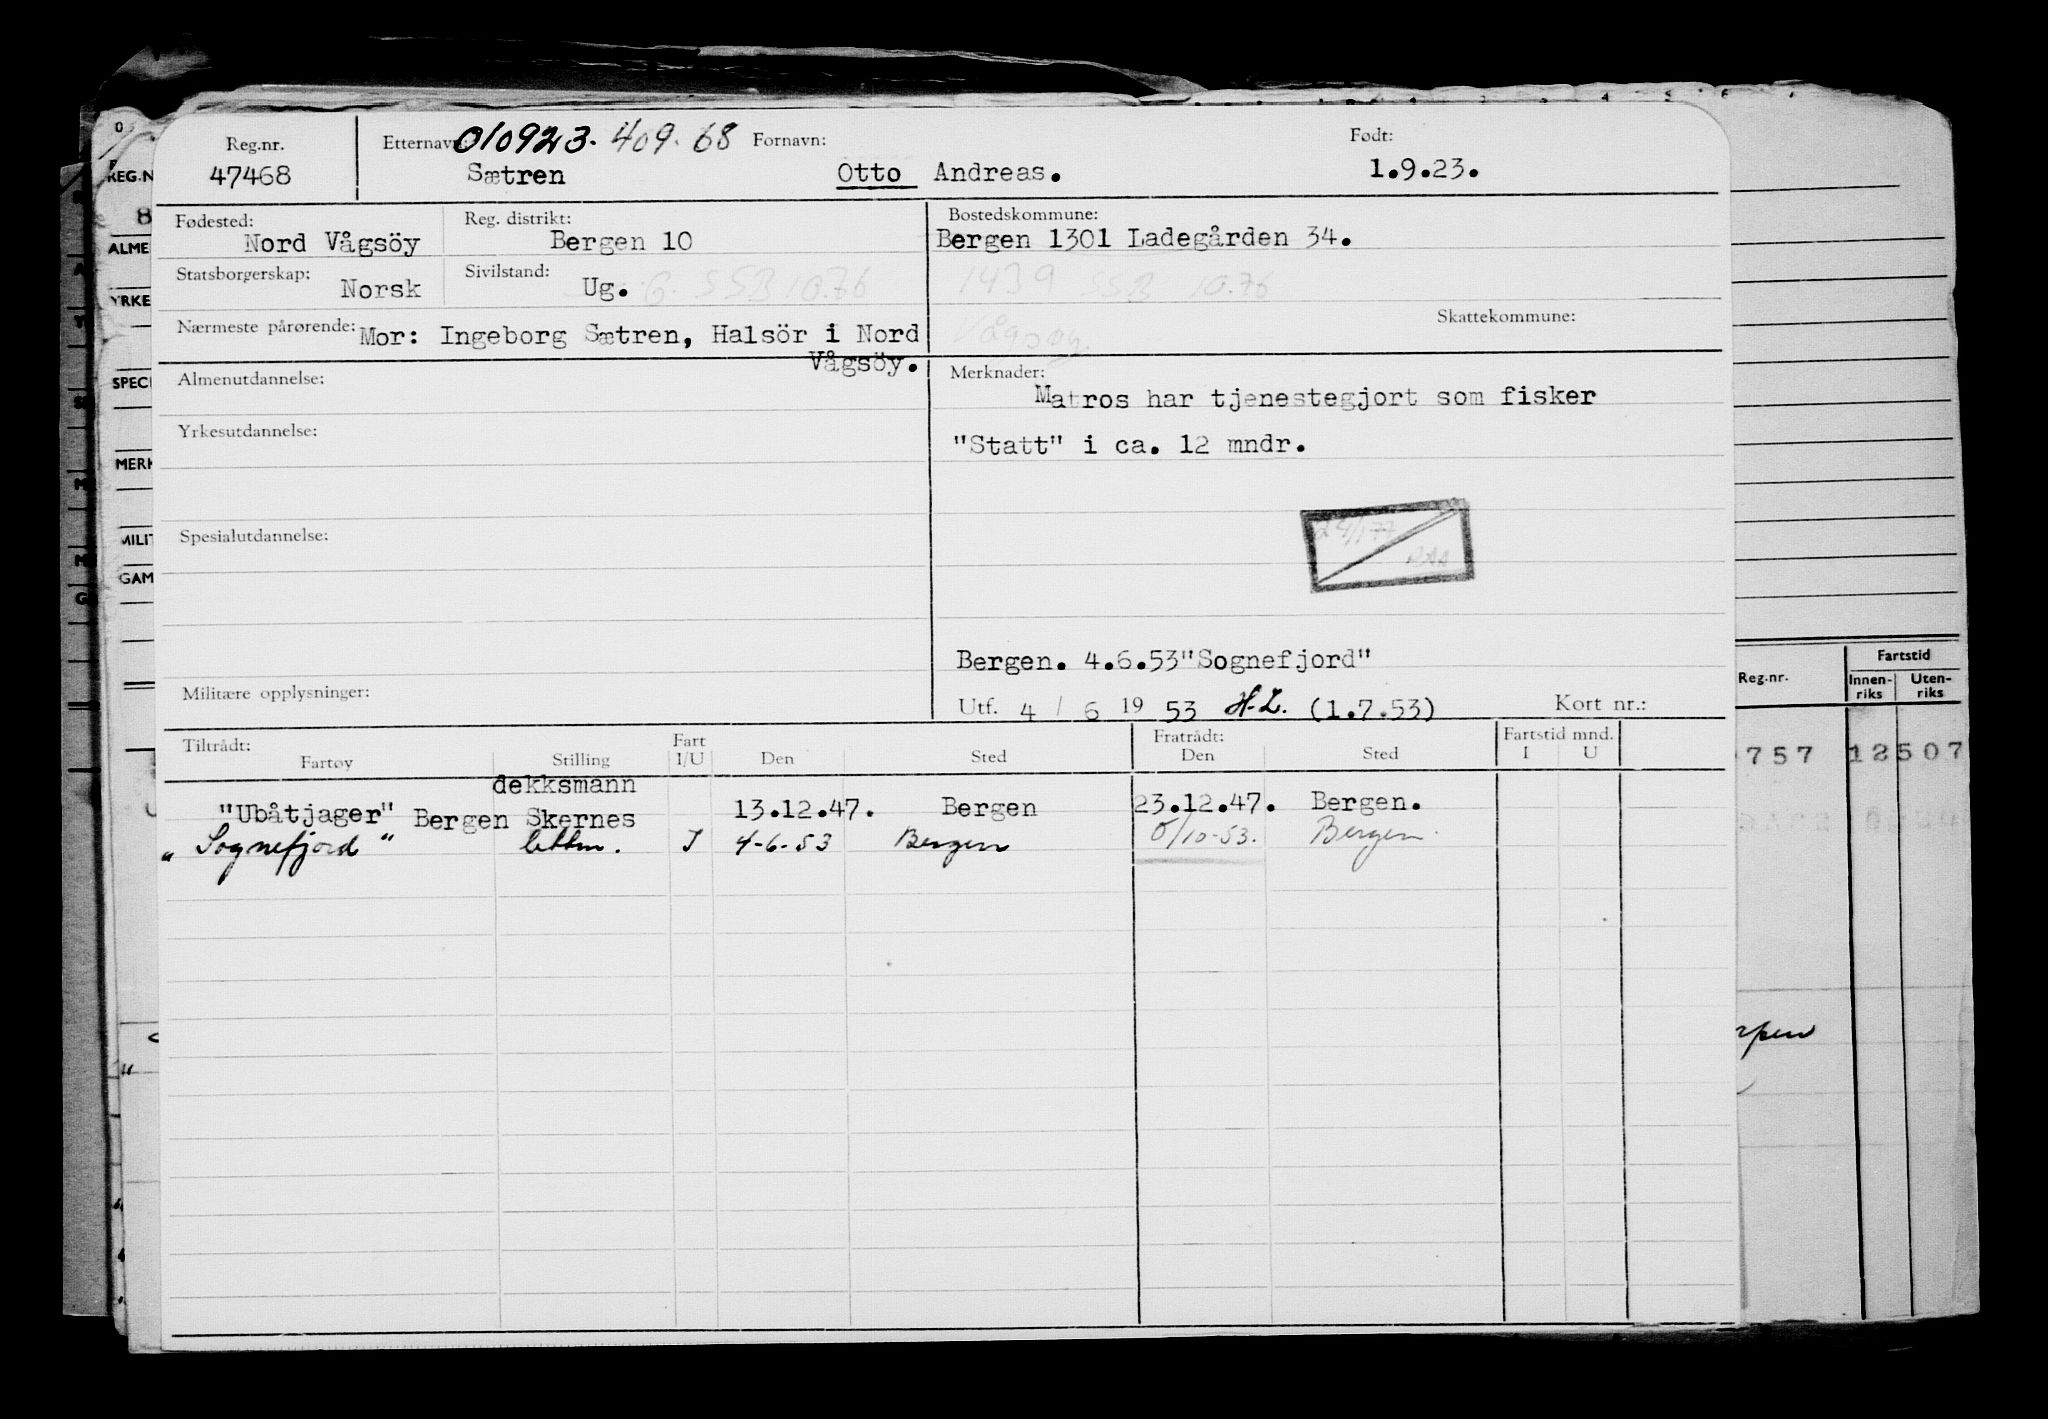 Reg.nr. Etternavn: 010923. 409.68 Fornavn: Født:
47468 Sætren Otto Andreas. 1.9.23.
Fødested: Reg. distrikt: Bostedskommune:
Nord Vågsöy Bergen 10 Bergen 1301 Ladegården 34.
Statsborgerskap: Sivilstand:
Norsk Ug. G. SSB 10.76 1439 SSB 10.76
Skattekommune:
Nærmeste pårørende: Mor: Ingeborg Sætren, Halsör i Nord Vågsöy.
Vågsöy.
Almenutdannelse: Merknader:
Matros har tjenestegjort som fisker
Yrkesutdannelse:
"Statt" i ca. 12 mndr.
24/1 77
Spesialutdannelse:
Bergen. 4.6.53 "Sognefjord"
Militære opplysninger:
Utf. 4 / 6 19 53 H.L. (1.7.53) Kort nr.:
Tiltrådt: Fratrådt: Fartstid mnd.
Fartøy Stilling Fart I/U Den Sted Den Sted I U
dekksmann
"Ubåtjager" Bergen Skernes 13.12.47. Bergen 23.12.47. Bergen.
"Sognefjord" lettm. I 4-6-53 Bergen 5/10-53. Bergen
REG.N
8
ALME
YRKE
SPECI
MERK
MILIT
GAM
Reg.nr. Fartstid
Innen-riks Uten-riks
757 12507